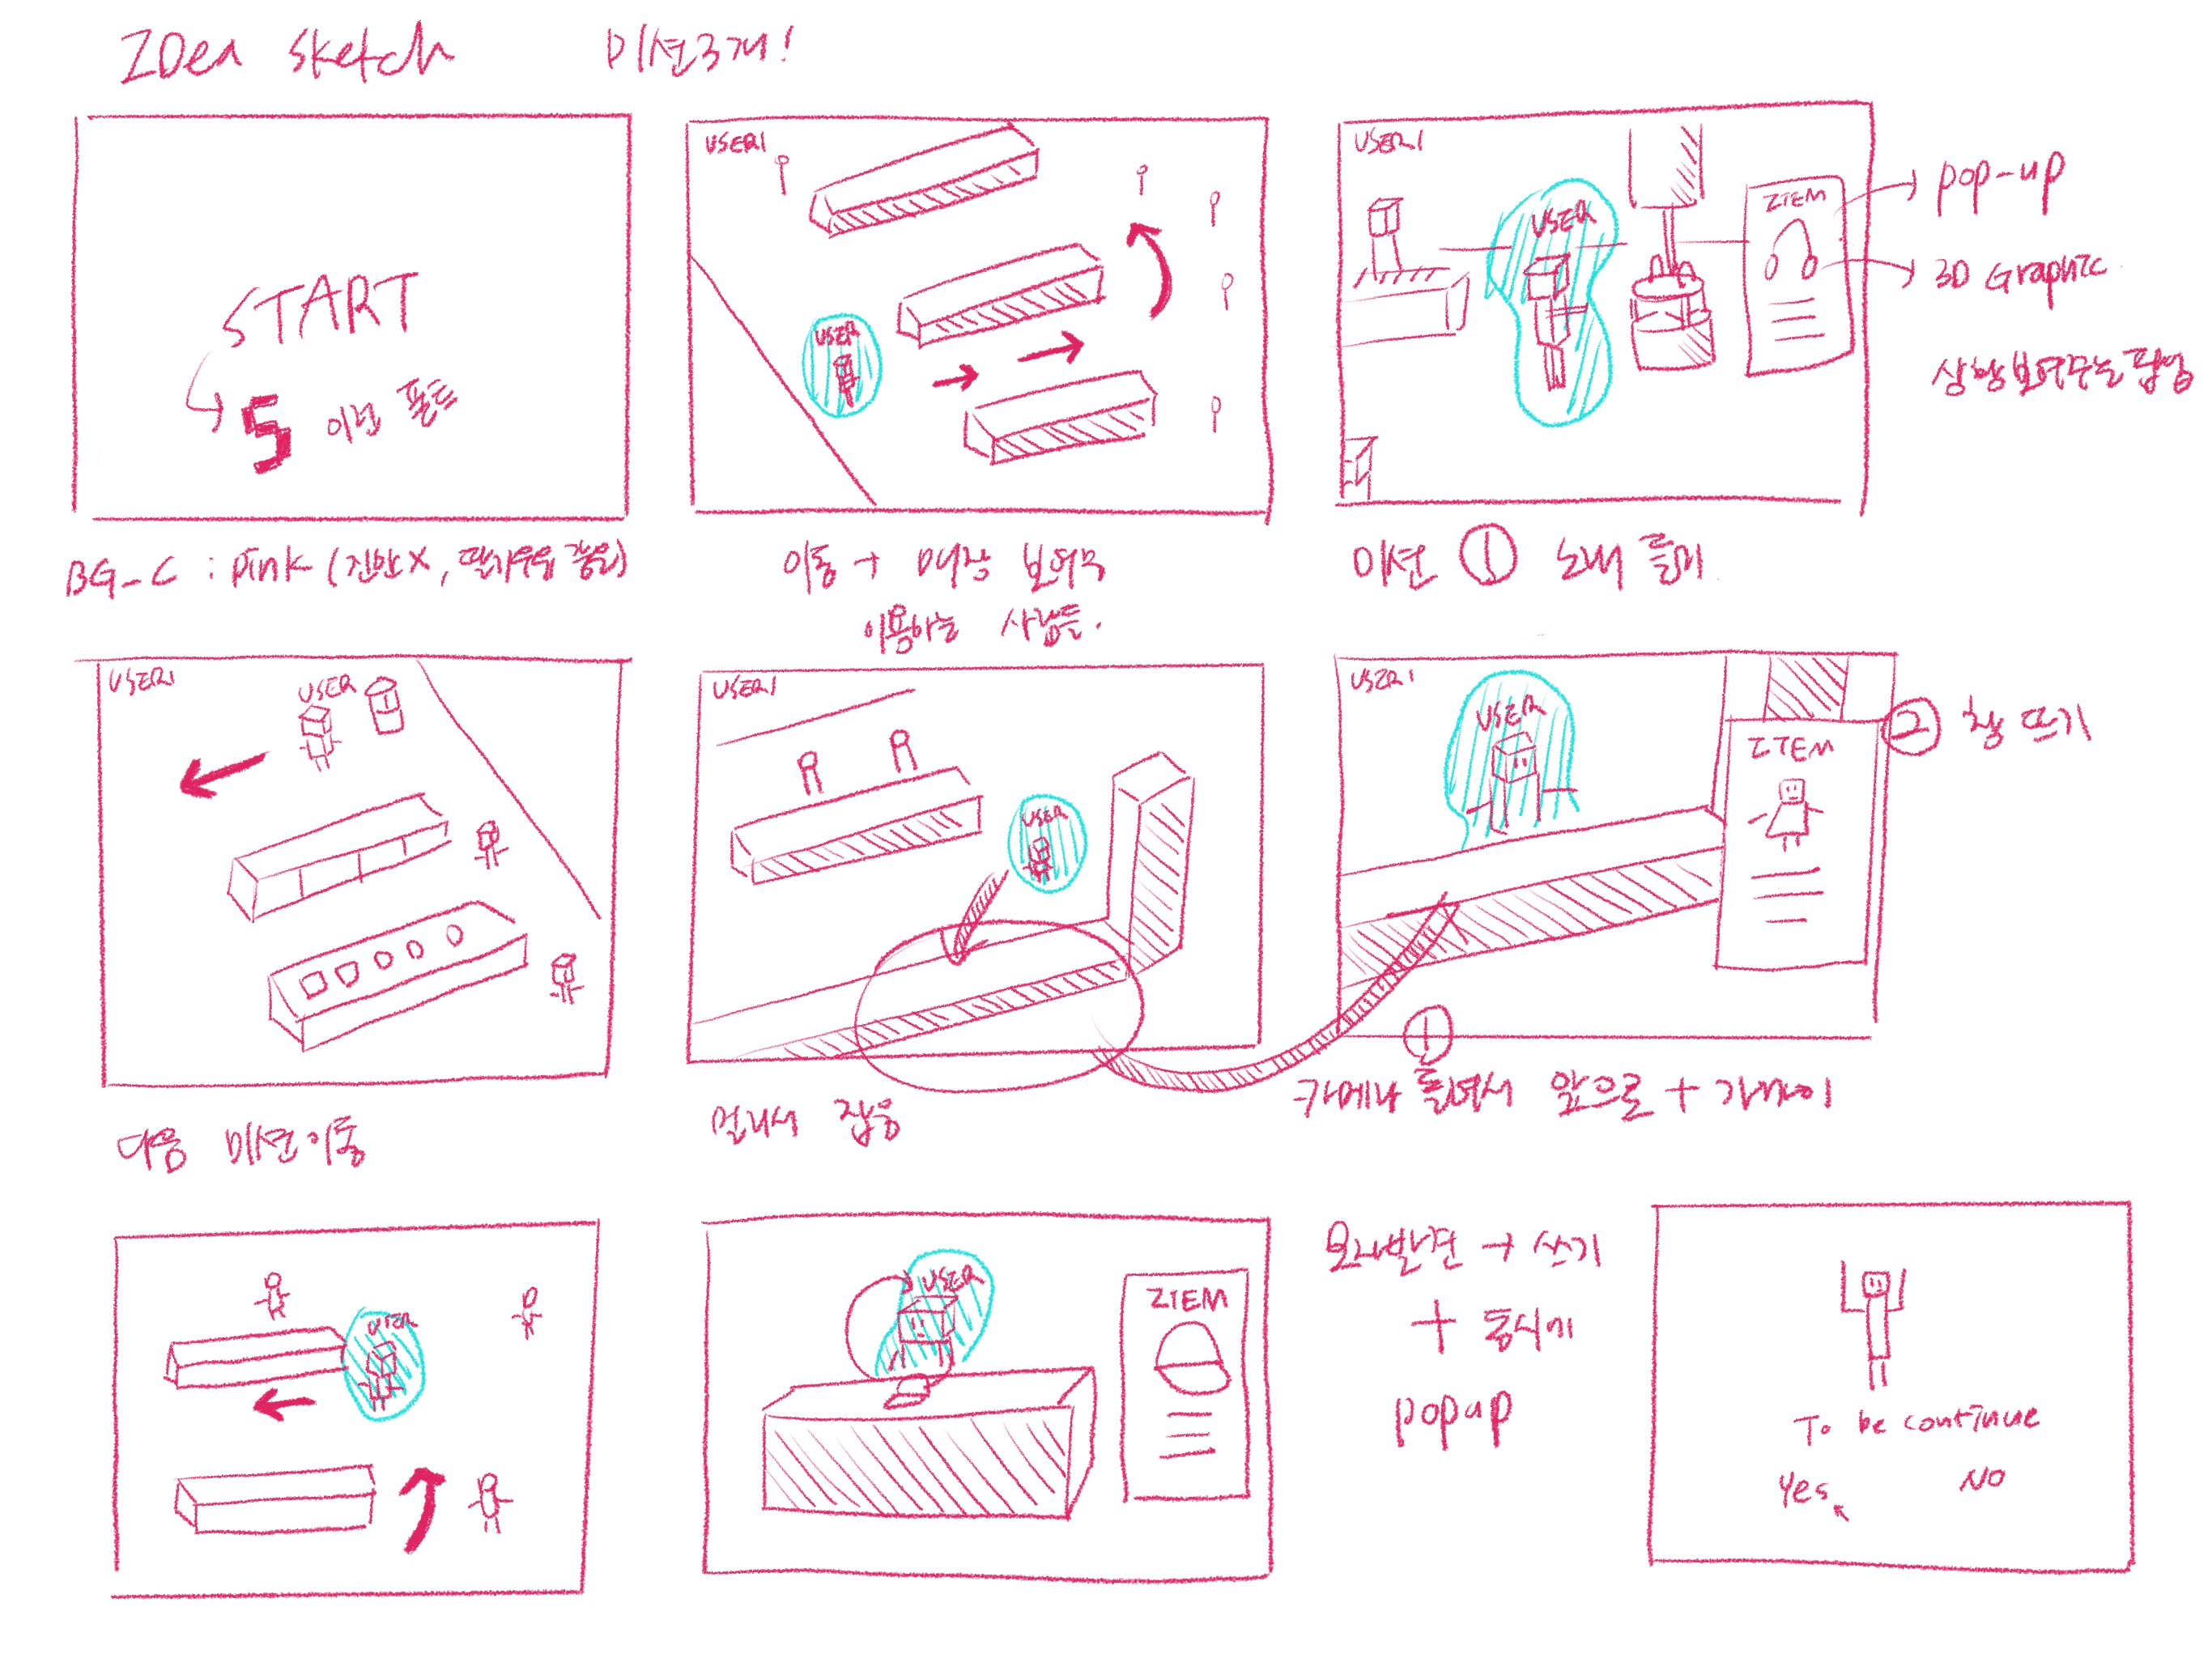 IDea sketch 미션 3개!
START
S 이런 폰트
BG_C : pink (진한X, 딸기우유 같은)
USER1
USER
이동 → 매장 보여주
이용하는 사람들.
USER1
USER
ITEM
pop-up
3D Graphic
상황보여주는 팝업
미션 ① 노래 듣기
USER1
USER
다음 미션이동
USER1
USER
멀리서 잡음
USER1
USER
ITEM
② 창 뜨기
①
카메라 돌면서 앞으로 + 가까이
USER
USER
ITEM
모자발견 → 쓰기
+ 동시에
popup
To be continue
Yes NO